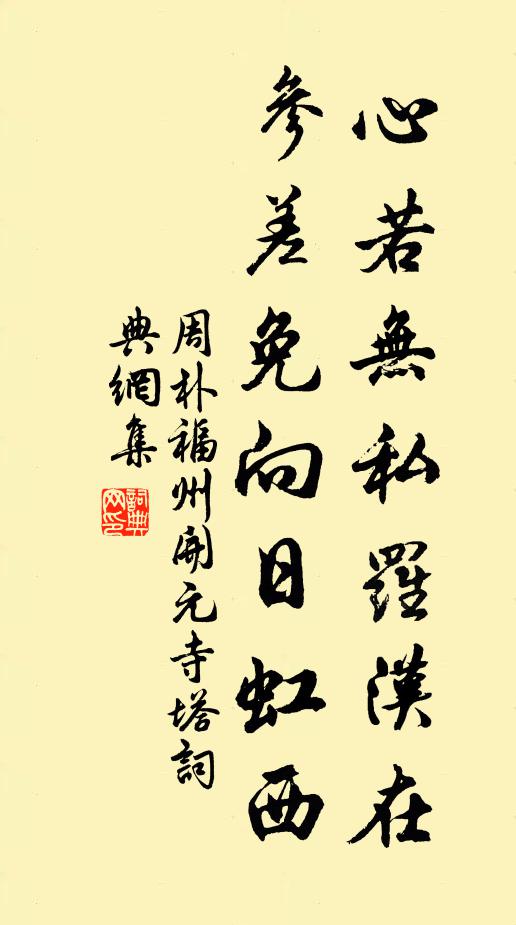 心若無私羅漢在
參差免向日虹西
周朴福州開元寺塔詞
典網集
詞典網印